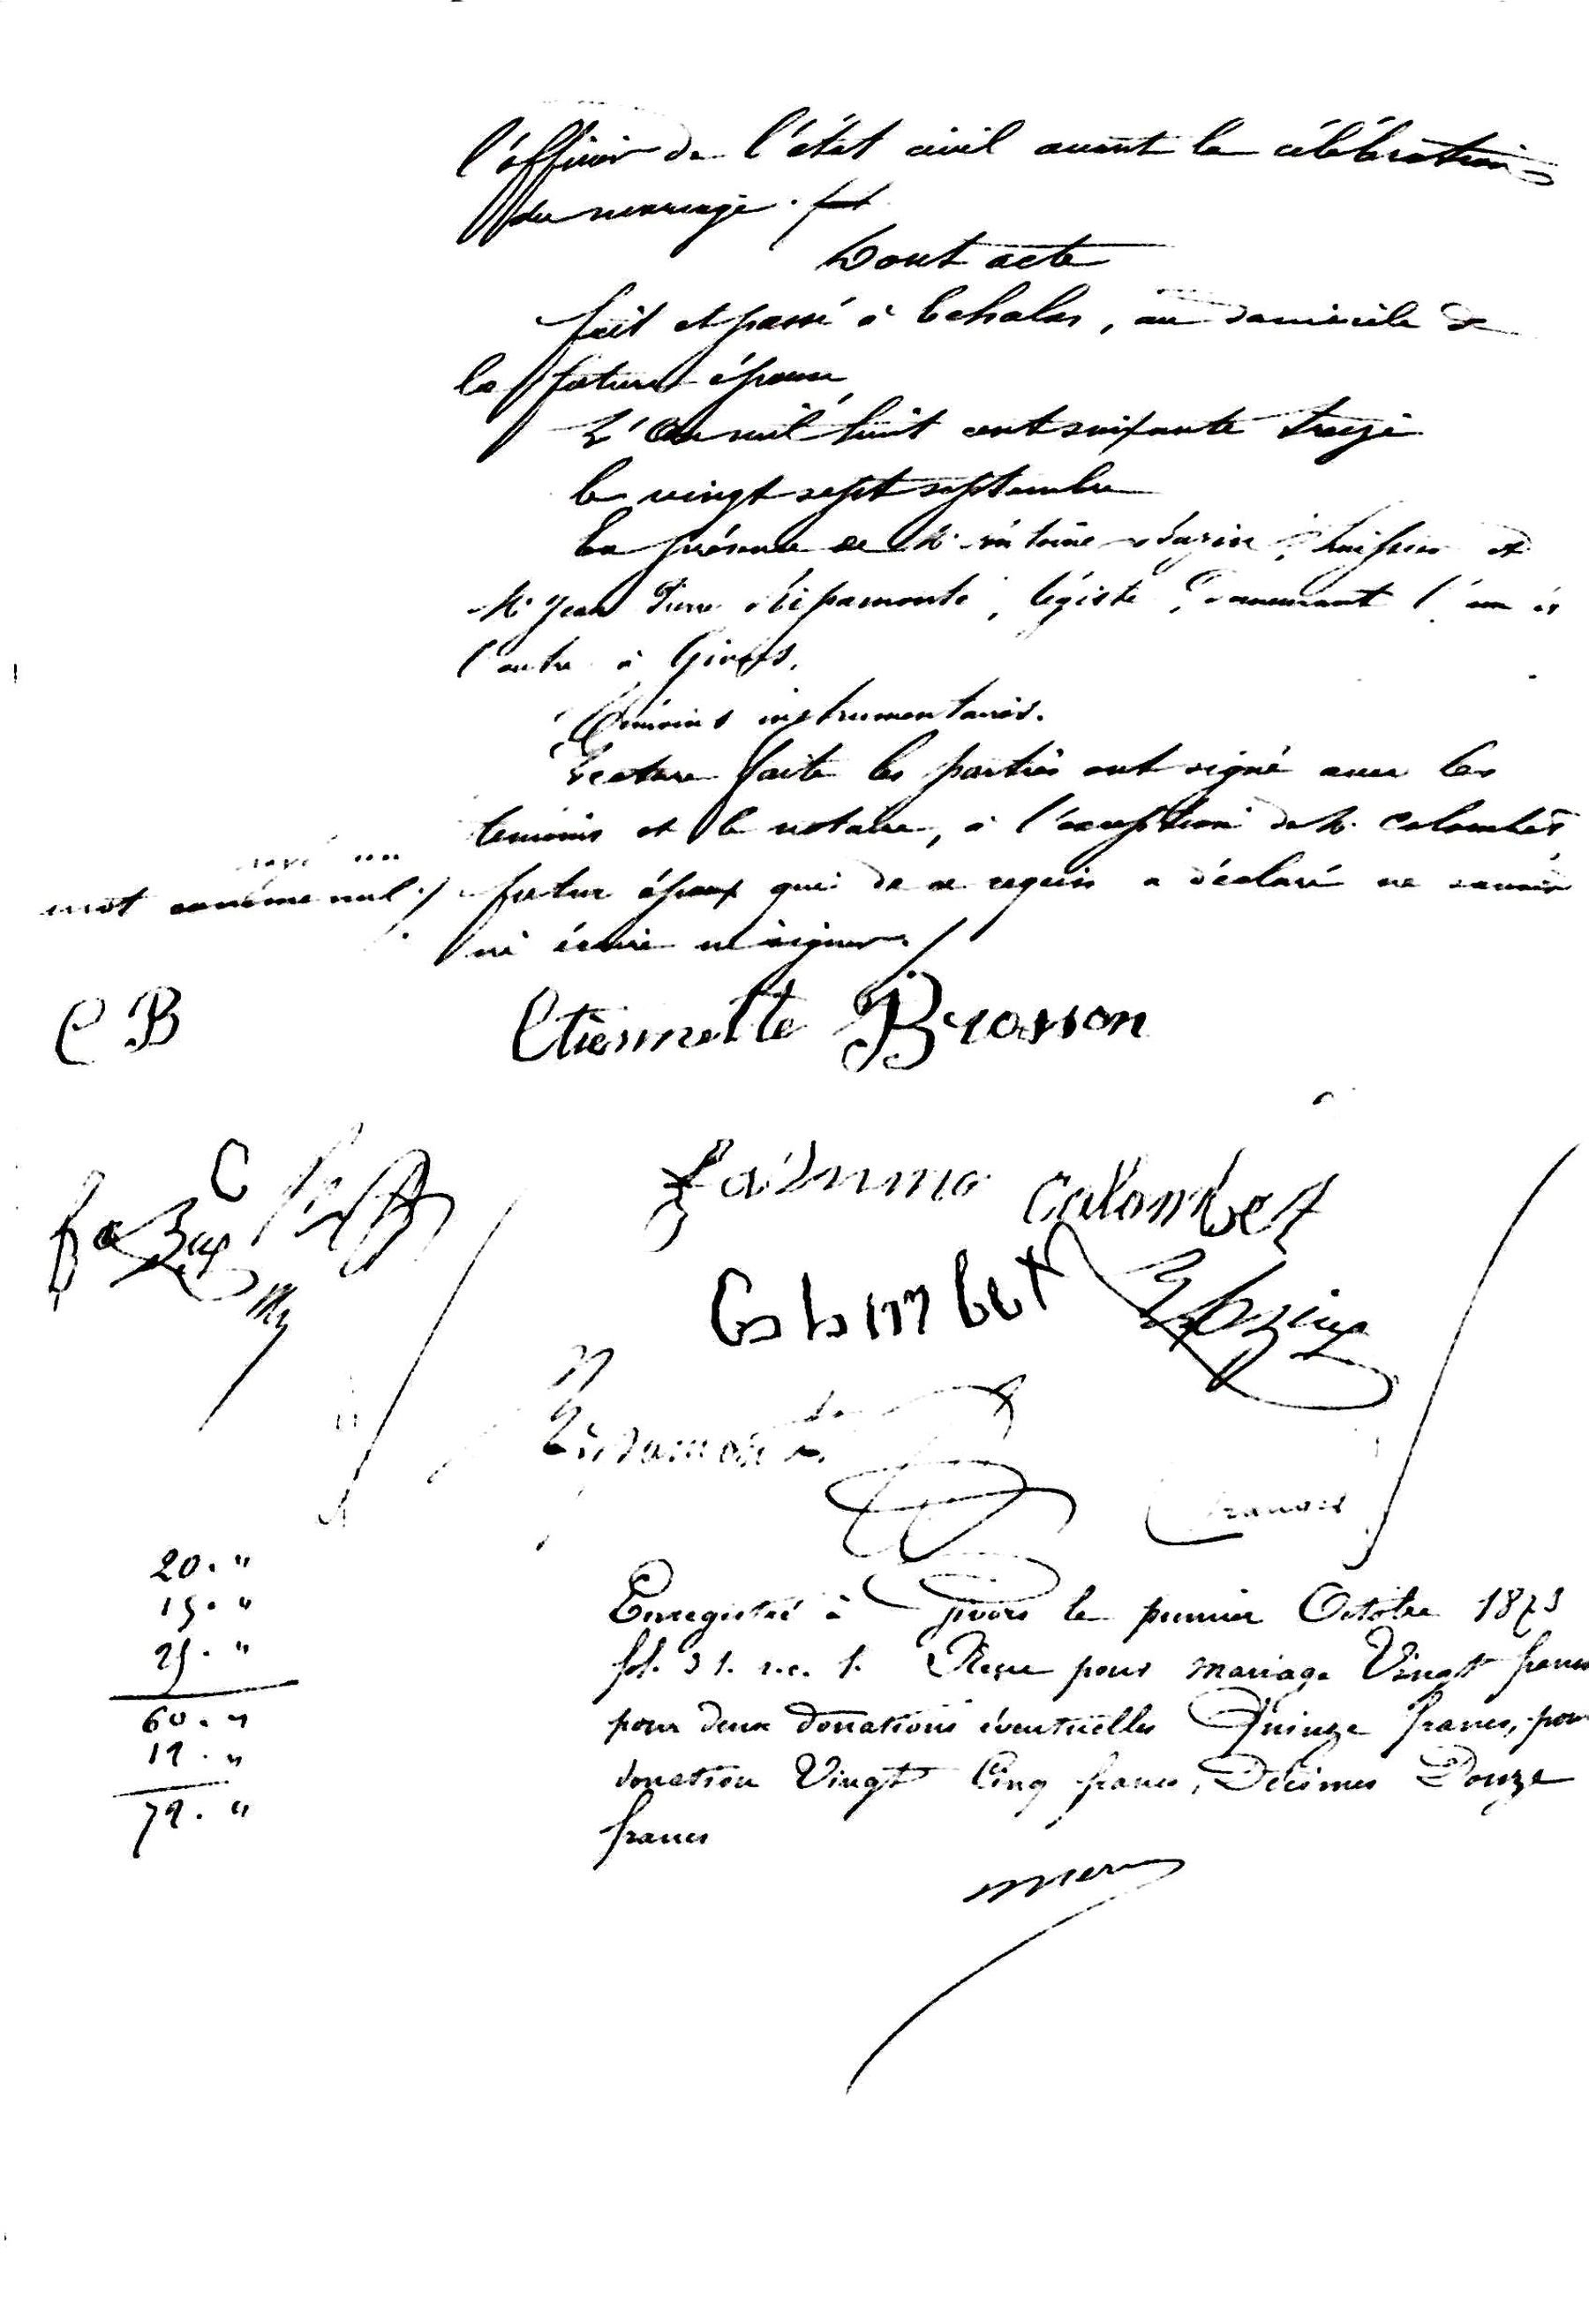 l'officier de l'état civil avant la célébration
du mariage.
Dont acte
fait et passé à Echalas, au domicile de
la future épouse,
L'An mil huit cent soixante treize
le vingt sept septembre
En présence de M. Antoine huissier et
M. Jean Pierre légiste, demeurant l'un et
l'autre à Givors,
Témoins instrumentaires.
Lecture faite les parties ont signé avec les
témoins et le notaire, à l'exception de M. Colombet
rayé un
mot comme nul ./.
futur époux qui de ce requis a déclaré ne savoir
ni écrire ni signer ./
E B
Etiennette Brosson
Colombet
Colombet
20. "
15. "
25. "
60. "
12. "
72. "
Enregistré à Givors le premier Octobre 1873
fol. 31. r. c. 1. Reçu pour mariage Vingt francs
pour deux donations éventuelles Quinze francs, pour
donation Vingt Cinq francs, Décimes Douze
francs